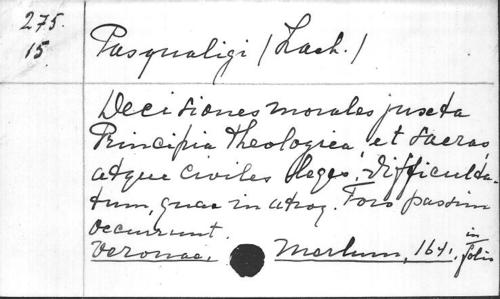 275.
15.
Pasqualigi (Zach.)
Decisiones morales juxta
Principia theologica, et sacras,
atque civiles leges, difficulta-
tum, quae in utroq. Foro passim
occurrunt.
Veronae, Merlum, 1641. in folio